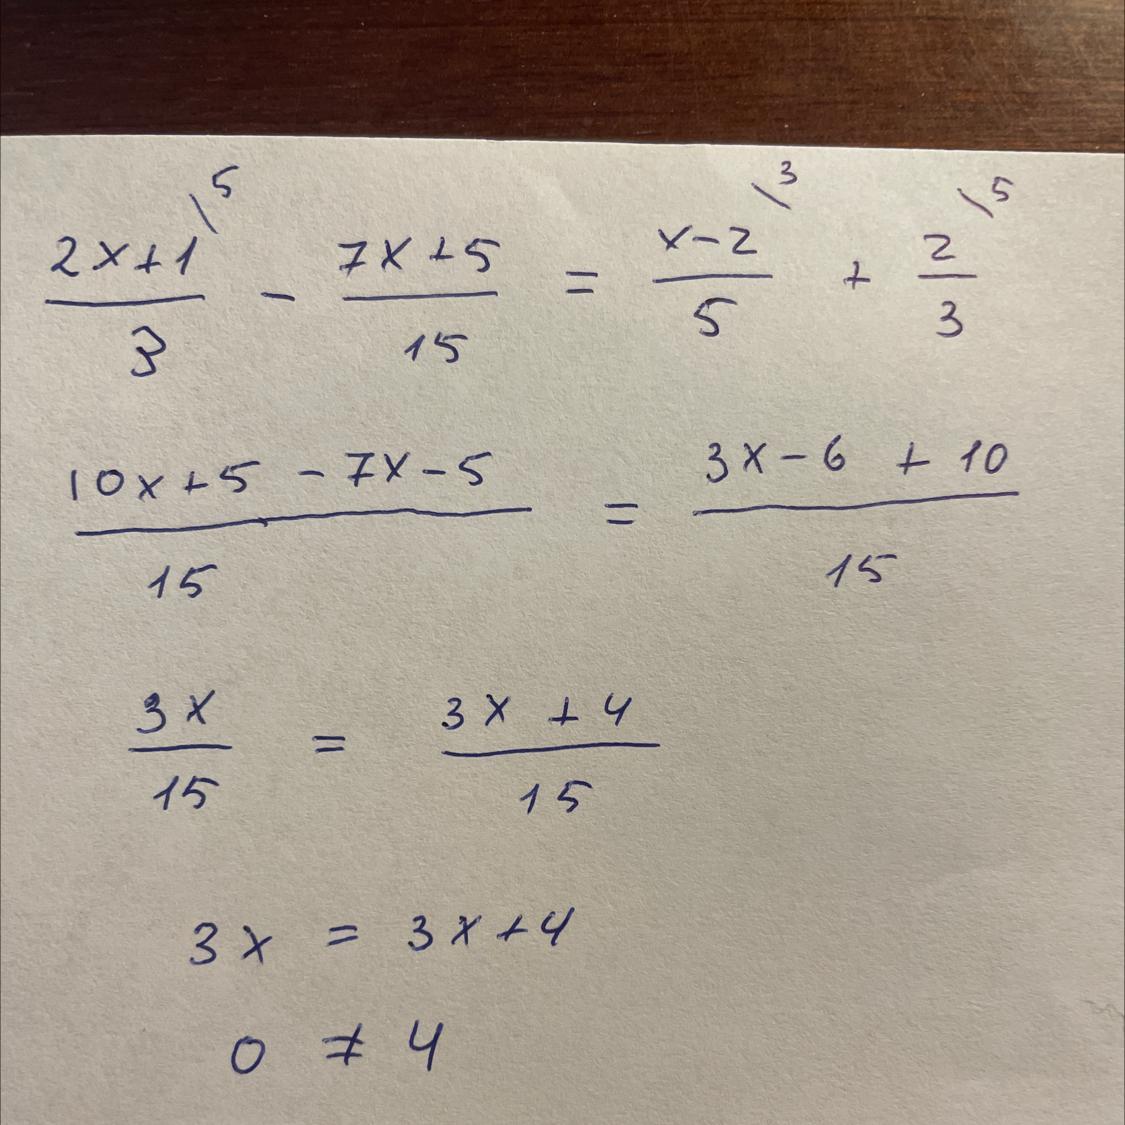 2x+1\5 / 3 - 7x+5 / 15 = x-2\3 / 5 + 2\5 / 3
10x+5 -7x-5 / 15 = 3x-6 + 10 / 15
3x / 15 = 3x + 4 / 15
3x = 3x+4
0 ≠ 4